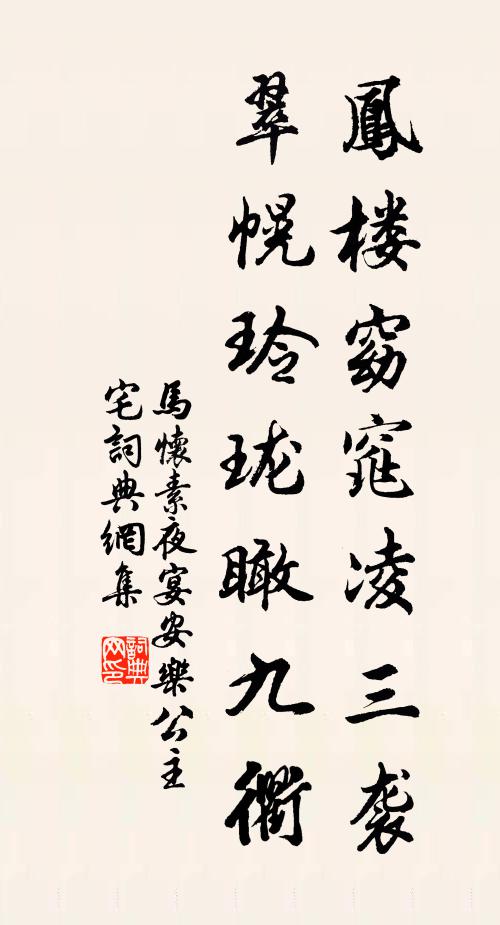 鳳楼窈窕凌三袭
翠幌玲珑瞰九衢
馬懷素夜宴安樂公主
宅詞典網集
詞典网印